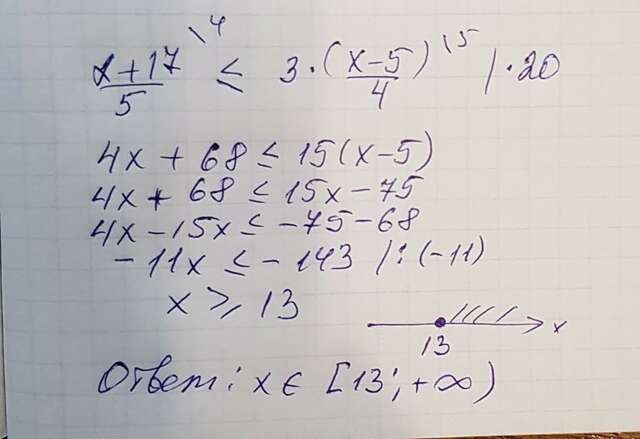 (x+17)/5 \4 ≤ 3·(x-5)/4 \5 | ·20
4x + 68 ≤ 15(x-5)
4x + 68 ≤ 15x - 75
4x - 15x ≤ -75 - 68
-11x ≤ -143 | : (-11)
x ≥ 13
13 x
Ответ: x ∈ [13; +∞)